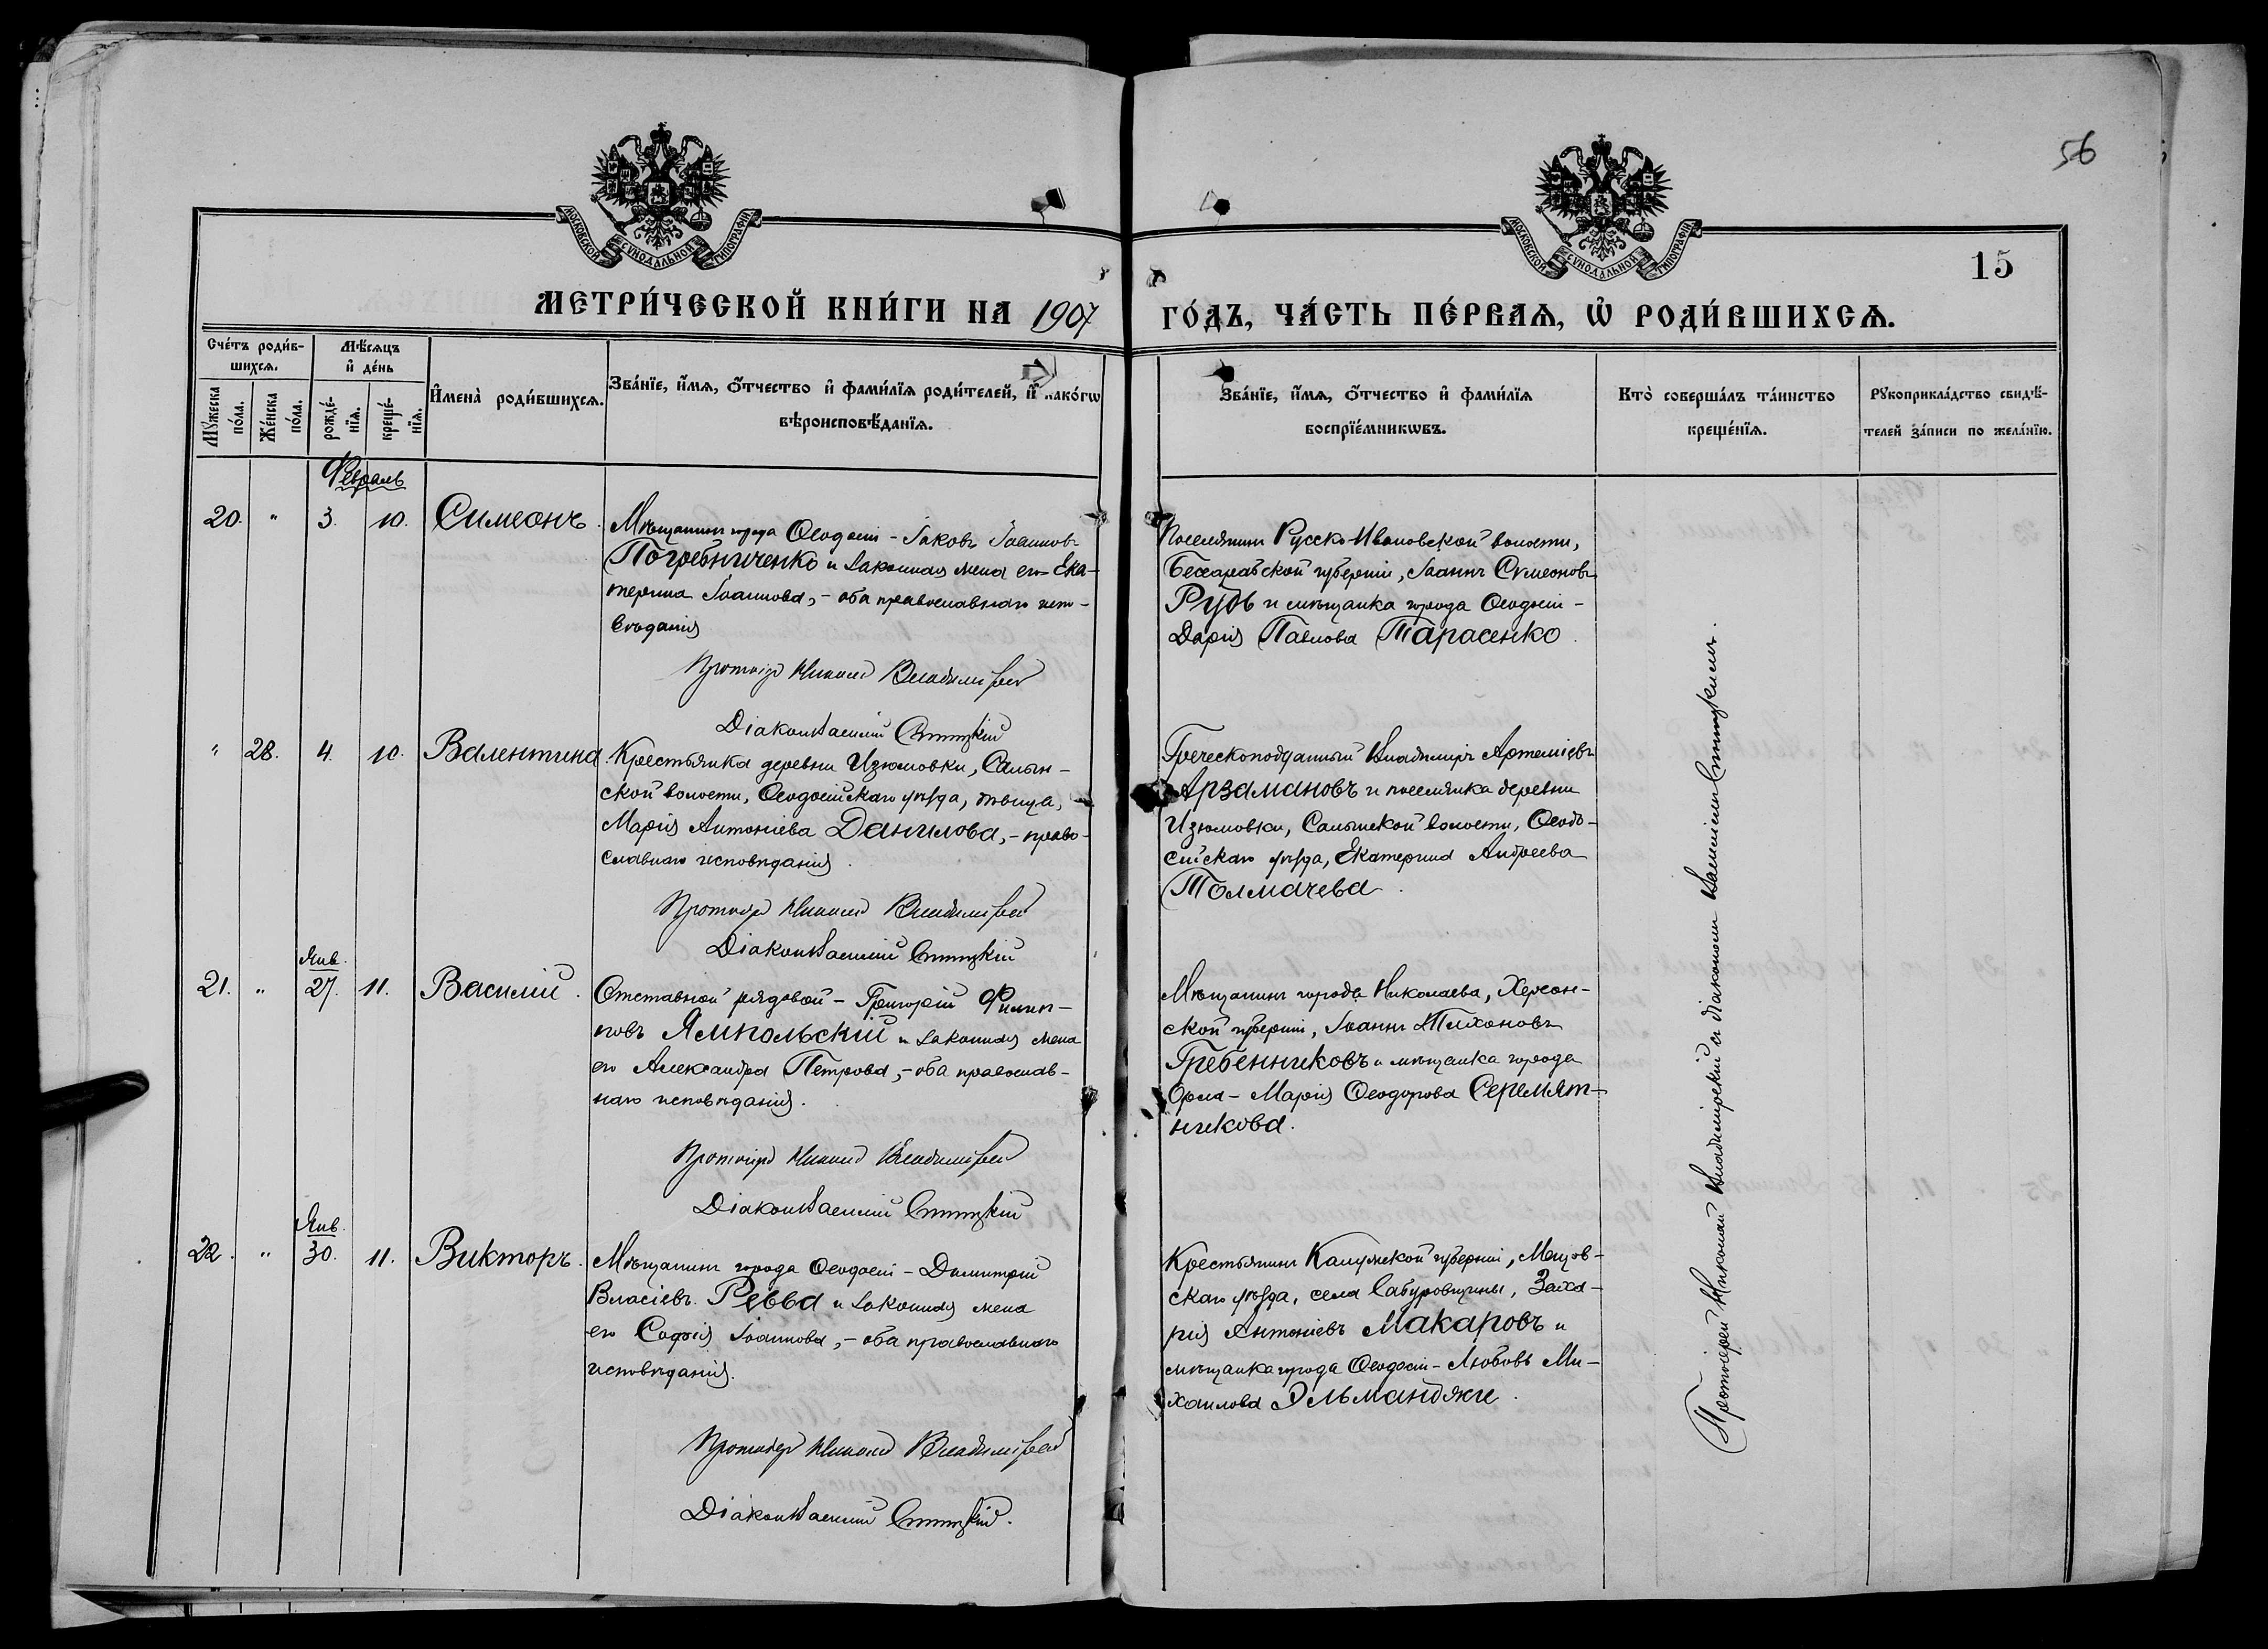 56
МОСКОВСКОЙ СѴНОДАЛЬНОЙ ТИПОГРАФІИ
МОСКОВСКОЙ СѴНОДАЛЬНОЙ ТИПОГРАФІИ
15
МЕТРИ́ЧЕСКОЙ КНИ́ГИ НА 1907 ГО́ДЪ, ЧА́СТЬ ПЕ́РВАѦ, Ѡ РОДИ́ВШИХСѦ.
Сче́тъ роди́в-
шихсѧ.
Мꙋ́жеска
по́ла.
Же́нска
по́ла.
Мѣ́сѧцъ
и҆ де́нь
рожде́-
нїѧ.
креще́-
нїѧ.
И҆мена̀ роди́вшихсѧ.
Зва́нїе, и҆́мѧ, ѻ҆́тчество и҆ фами́лїѧ роди́телей, и҆ како́гѡ
вѣроисповѣ́данїѧ.
Зва́нїе, и҆́мѧ, ѻ҆́тчество и҆ фами́лїѧ
воспрїе́мникѡвъ.
Кто̀ соверша́лъ та́инство
креще́нїѧ.
Рꙋкоприкла́дство свидѣ́-
телей за́писи по жела́нїю.
Февраль
20. " 3. 10. Симеонъ.
Мѣщанинъ города Ѳеодосіи - Іаковъ Іоанновъ
Погребниченко и законная жена его Ека-
терина Іоаннова, - оба православнаго испо-
вѣданія
Протоіер Николай Владимірскій
Діаконъ Василій Ступицкій
Поселянинъ Русско-Ивановской волости,
Бессарабской губерніи, Іоаннъ Симеоновъ
Рубь и мѣщанка города Ѳеодосіи -
Дарія Павлова Тарасенко.
" 28. 4. 10. Валентина.
Крестьянка деревни Изюмовки, Салын-
ской волости, Ѳеодосійскаго уѣзда, дѣвица,
Марія Антоніева Данилова, - право-
славнаго исповѣданія.
Протоіер Николай Владимірскій
Діаконъ Василій Ступицкій
Греческоподданный Владиміръ Артеміевъ
Арзамановъ и поселянка деревни
Изюмовки, Салынской волости, Ѳеодо-
сійскаго уѣзда, Екатерина Андреева
Толмачева.
Янв.
21. " 27. 11. Василій.
Отставной рядовой - Григорій Филип-
повъ Ямпольскій и законная жена
его Александра Петрова, - оба православ-
наго исповѣданія.
Протоіер Николай Владимірскій
Діаконъ Василій Ступицкій
Мѣщанинъ города Николаева, Херсон-
ской губерніи, Іоаннъ Тихоновъ
Гребенниковъ и мѣщанка города
Орла - Марія Ѳеодорова Серемят-
никова.
Янв.
22. " 30. 11. Викторъ.
Мѣщанинъ города Ѳеодосіи - Димитрій
Власіевъ Ревва и законная жена
его Софія Іоаннова, - оба православнаго
исповѣданія.
Протоіер Николай Владимірскій
Діаконъ Василій Ступицкій.
Крестьянинъ Калужской губерніи, Мещов-
скаго уѣзда, села Сабуровщины, Заха-
рія Антоніевъ Макаровъ и
мѣщанка города Ѳеодосіи - Любовь Ми-
хаилова Эльманджи.
Протоіерей Николай Владимірскій и діаконом Василіем Ступицкимъ.